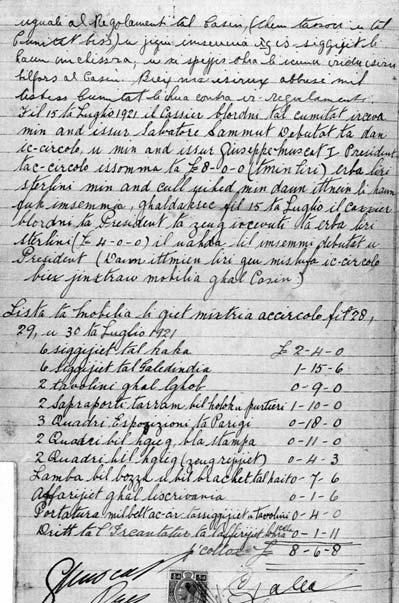 uguali al Regolament tal Casin, (them tasori u tal
Cumitat biss) u jigu imsemmija is-siggijiet li
haun imnissra, u ni spejjes ohra li
bilfors al Casin. Biex ma isirux abbusi mil
listess Cumitat li hua contra ir-regulament.
Fil 15 ta Luglio 1921 il Cassier blordni tal cumitat irceva
min and issur Salvatore Sammut Debutat ta dan
ic-circolo, u min and issur Giuseppe Muscat I President
tac-circolo issomma ta £8-0-0 (tmin liri) erba liri
sterlini min and cull uihed min daun ittnein li haun
fuk imsemmija, ghaldaksec fil 15 ta Luglio il cassier
blordni ta President ta zeug ircevuti ta erba liri
sterlini (£ 4-0-0) il uahda lil imsemmi debutat u
President (Daun ittmien liri geu mislufa ic-circolo
biex jinxtraw mobilia ghal Casin)
Lista ta Mobilia li giet mixtria accircolo fit 28,
29, u 30 ta Luglio 1921
6 siggijiet tal haka £ 2-4-0
6 siggijiet tal Saledindia 1-15-6
2 tavolini ghal loghob 0-9-0
2 Sapraporti tarram bil holohu purtieri 1-10-0
3 Quadri Espozizioni ta Parigi 0-18-0
2 Quadri bil hgieg bla stampa 0-11-0
2 Quadri bil hgieg (zeug rigijiet) 0-4-3
Lamba bil bozza u bil bracket tal hait 0-7-6
Affarijiet ghal liscrivania 0-1-6
Portatura milbelt ac-cir tassiggijiet u tavolini 0-4-0
Dritt tal Ircantatur ta laffarijiet 0-1-11
j'collox £ 8-6-8